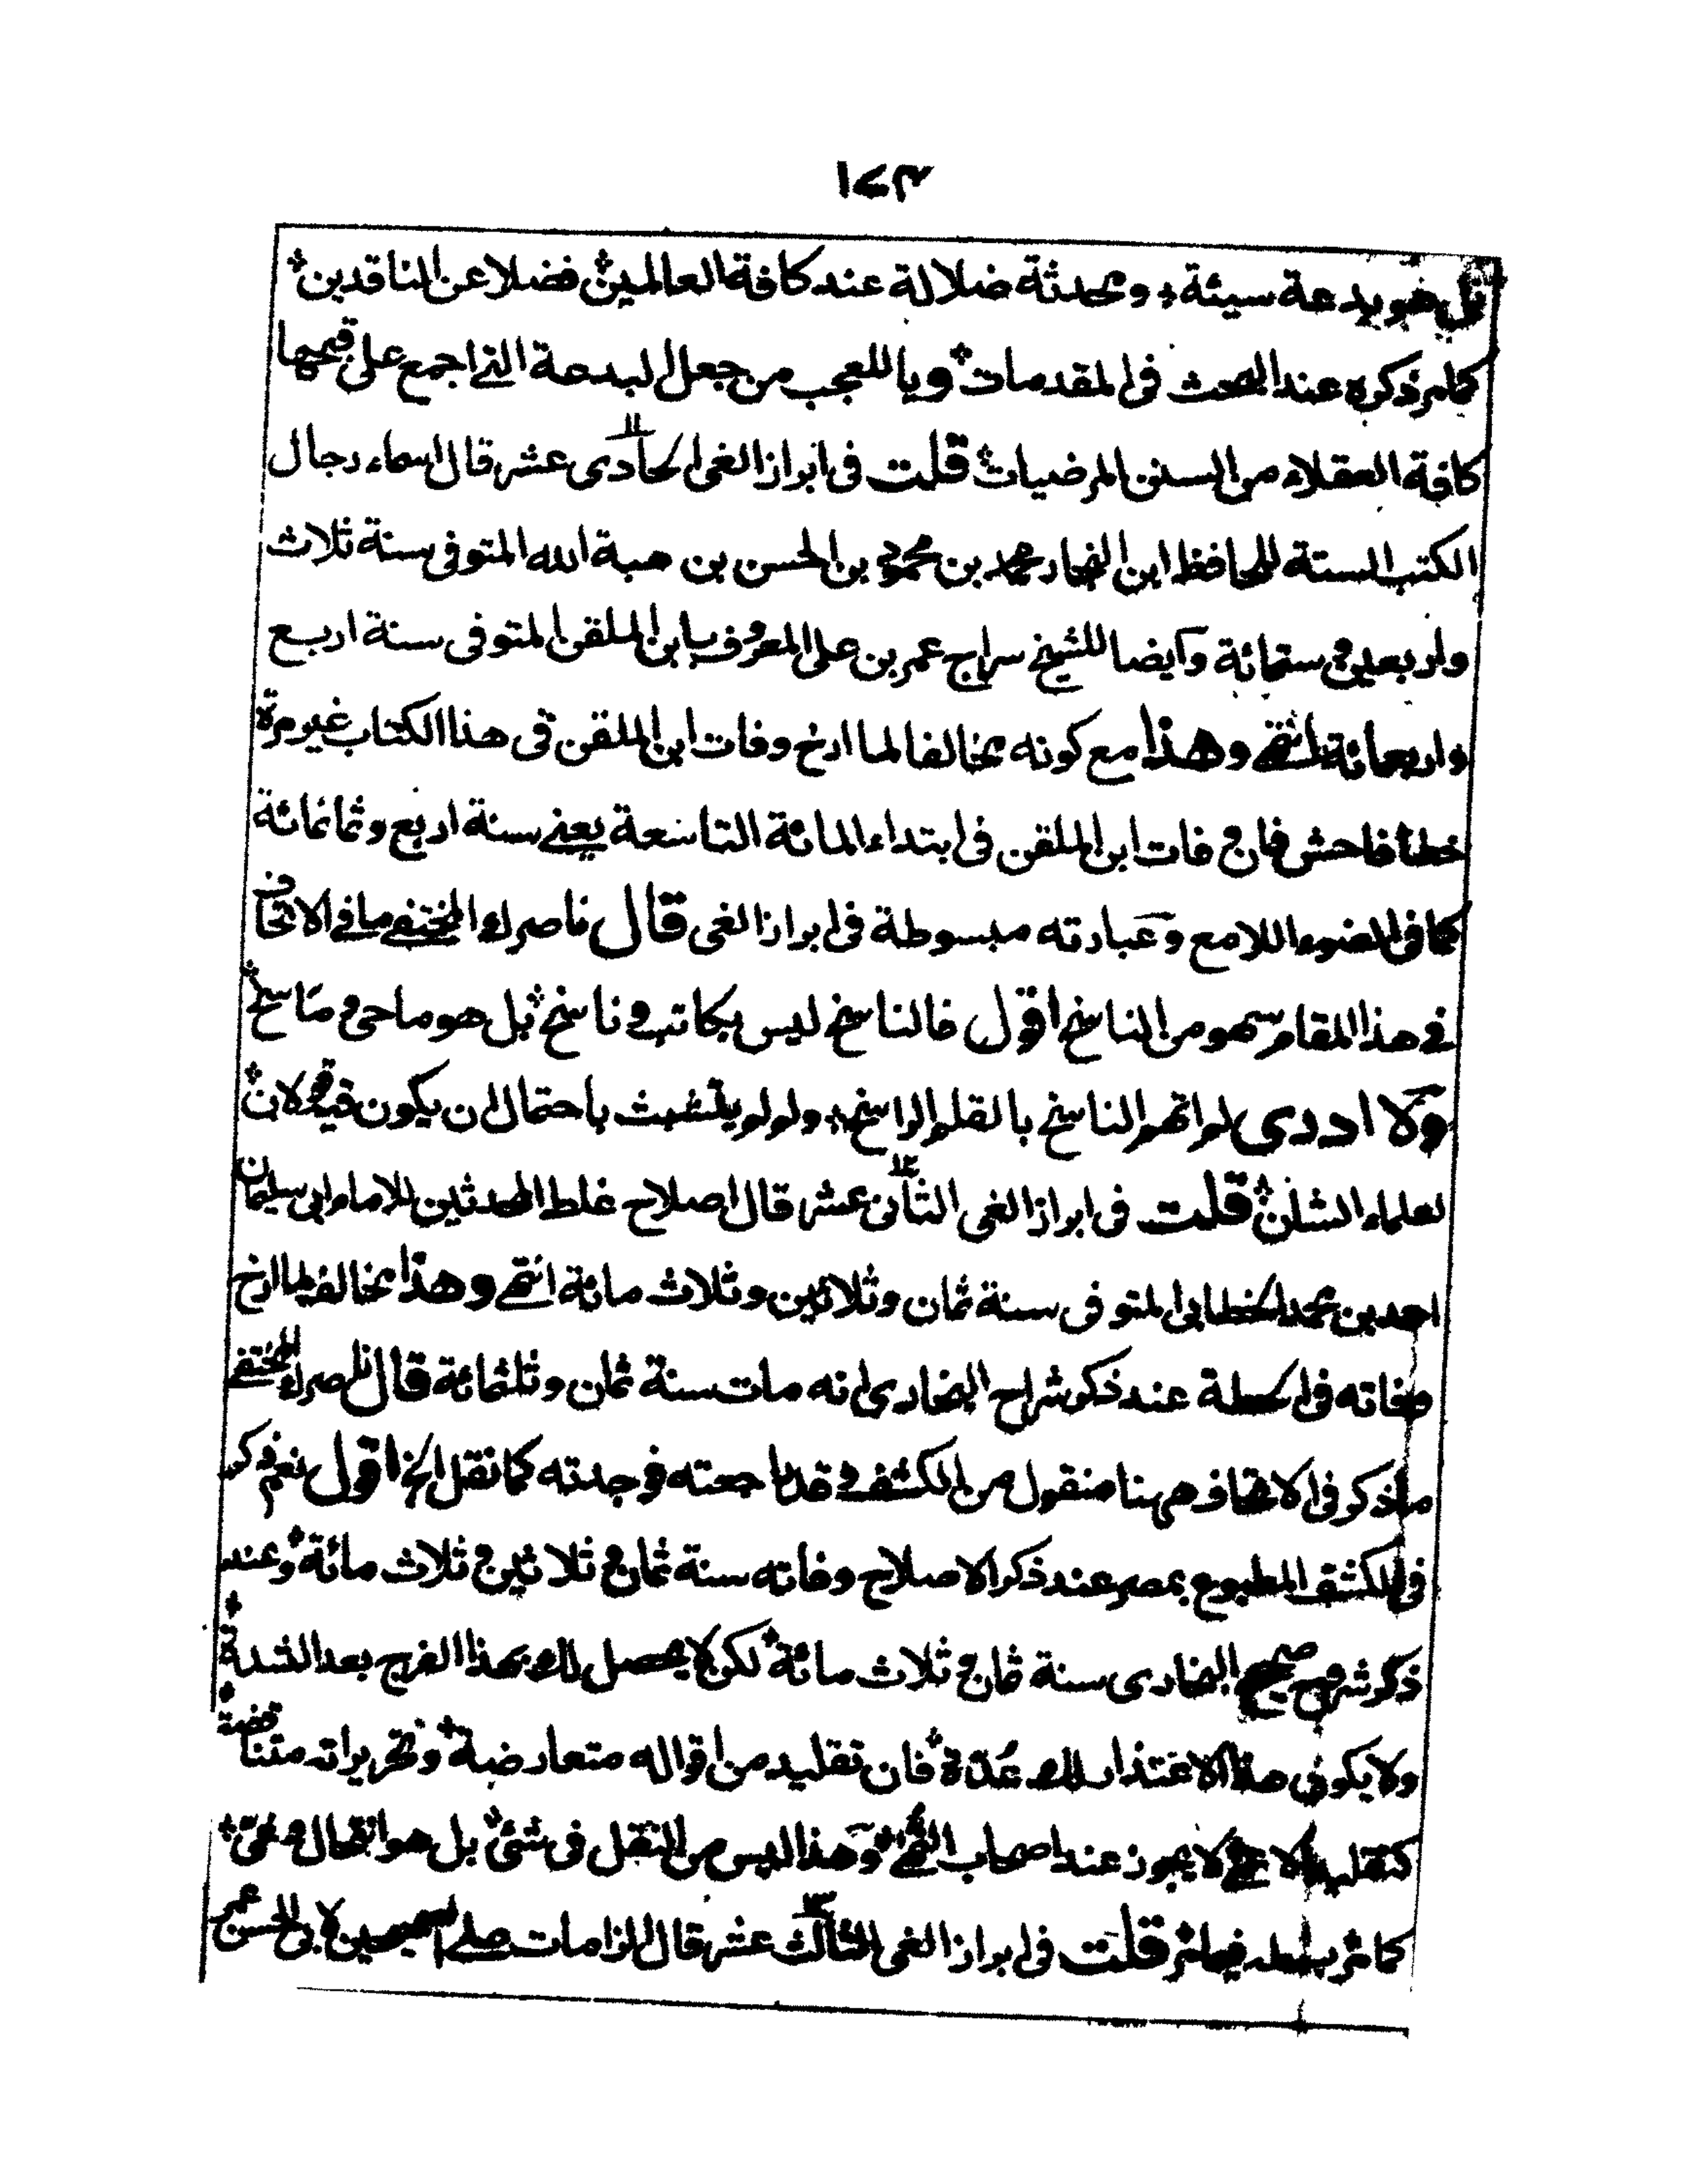 ١٧٣
بل هو بدعة سيئة ومحدثة ضلالة عند كافة العالمين فضلا عن الناقدين
كما مر ذكره عند البحث فى المقدمات ويا للعجب من جعل البدعة التى اجمع على قبحها
كافة العقلاء من السنن المرضيات قلت فى ابراز الغى الحادى عشر قال اسماء رجال
الكتب الستة للحافظ ابن النجار محمد بن محمود بن الحسن بن هبة الله المتوفى سنة ثلاث
واربعين وستمائة وايضا للشيخ سراج عمر بن على المعروف بابن الملقن المتوفى سنة اربع
واربعمائة انتهى وهذا مع كونه مخالفا لما ارخ وفات ابن الملقن فى هذا الكتاب غير مرة
خطأ فاحش فان وفات ابن الملقن فى ابتداء المائة التاسعة يعنى سنة اربع وثمانمائة
كما فى الضوء اللامع وعبارته مبسوطة فى ابراز الغى قال ناصرك المختفى ما فى الاتحاف
فى هذا المقام سهو من الناسخ اقول فالناسخ ليس بكاتب وناسخ بل هو ماحى وماسخ
ولا ادرى لم اتهم الناسخ بالقلم الراسخ ولم لم يتشبث باحتمال ان يكون فيه قولان
لعلماء الشان قلت فى ابراز الغى الثانى عشر قال اصلاح غلط المحدثين للامام ابى سليمان
احمد بن محمد الخطابى المتوفى سنة ثمان وثلاثين وثلاث مائة انتهى وهذا مخالف لما ارخ
وفاته فى الحطة عند ذكر شراح البخارى انه مات سنة ثمان وثلثمائة قال ناصرك المختفى
ما ذكر فى الاتحاف ههنا منقول من الكشف وقد راجعته فوجدته كما نقل الخ اقول نعم ذكر
فى الكشف المطبوع بمصر عند ذكر الاصلاح وفاته سنة ثمان وثلاثين وثلاث مائة وعند
ذكر شروح صحيح البخارى سنة ثمان وثلاث مائة لكن لا يحصل لك بهذا الفرج بعد الشدة
ولا يكون هذا الاعتذار لك عدة فان تقليد من اقواله متعارضة وتحريراته متناقضة
كتقليد الاعمى لا يجوز عند اصحاب النهى وهذا ليس من النقل فى شئ بل هو انتحال وغى
كما مر بسطه فيما مر قلت فى ابراز الغى الثالث عشر قال الزامات على الصحيحين لابى الحسن عمر